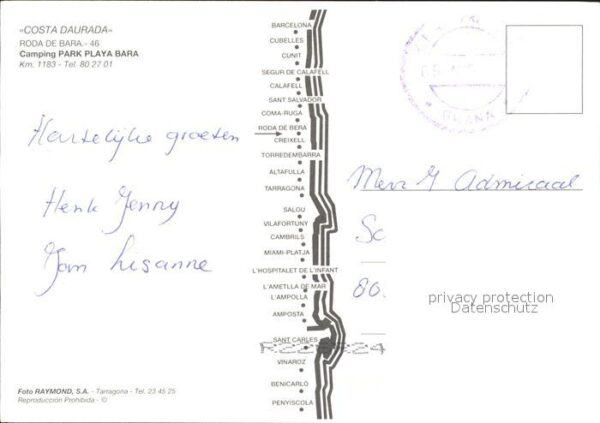 «COSTA DAURADA»
RODA DE BARA.- 46
Camping PARK PLAYA BARA
Km. 1183 - Tel. 80 27 01
Hartelijke groeten
Henk Jenny
Tom Lisanne
Foto RAYMOND, S.A. - Tarragona - Tel. 23 45 25
Reproducción Prohibida - ©
BARCELONA
CUBELLES
CUNIT
SEGUR DE CALAFELL
CALAFELL
SANT SALVADOR
COMA-RUGA
RODA DE BERA
CREIXELL
TORREDEMBARRA
ALTAFULLA
TARRAGONA
SALOU
VILAFORTUNY
CAMBRILS
MIAMI-PLATJA
L'HOSPITALET DE L'INFANT
L'AMETLLA DE MAR
L'AMPOLLA
AMPOSTA
SANT CARLES
VINAROZ
BENICARLÓ
PENYISCOLA
Admiraal
Sc
80.
privacy protection
Datenschutz